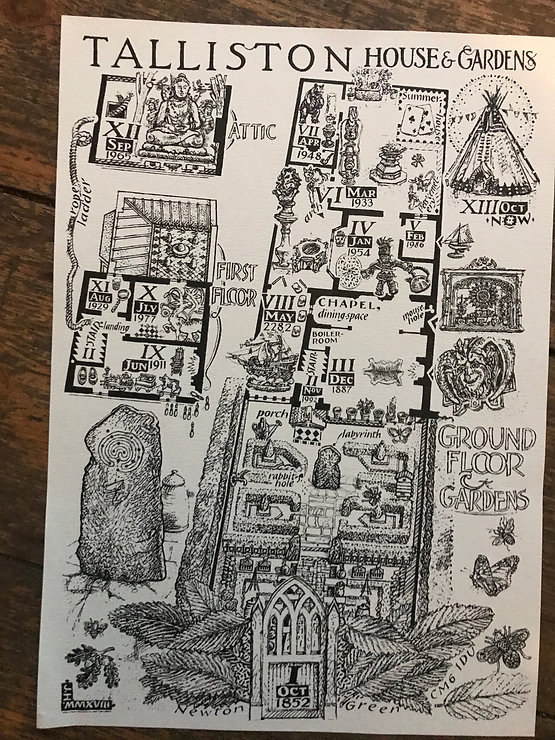 TALLISTON HOUSE & GARDENS
XII
SEP
1965
ATTIC
rope ladder
FIRST
FLOOR
XI
AUG
1929
X
JLY
1977
STAIR
landing
II
IX
JUN 1911
VII
APR
1948
Summer
VI MAR
1933
IV
JAN
1954
V
FEB
1986
XIII OCT
NOW
VIII
MAY
2282
CHAPEL,
dining space
mouse hole
BOILER-
ROOM
STAIR
II
NOV
1992
III
DEC
1887
porch
labyrinth
rabbit hole
GROUND
FLOOR
&
GARDENS
I
OCT
1852
Newton Green
CM6 1DU
MMXVIII